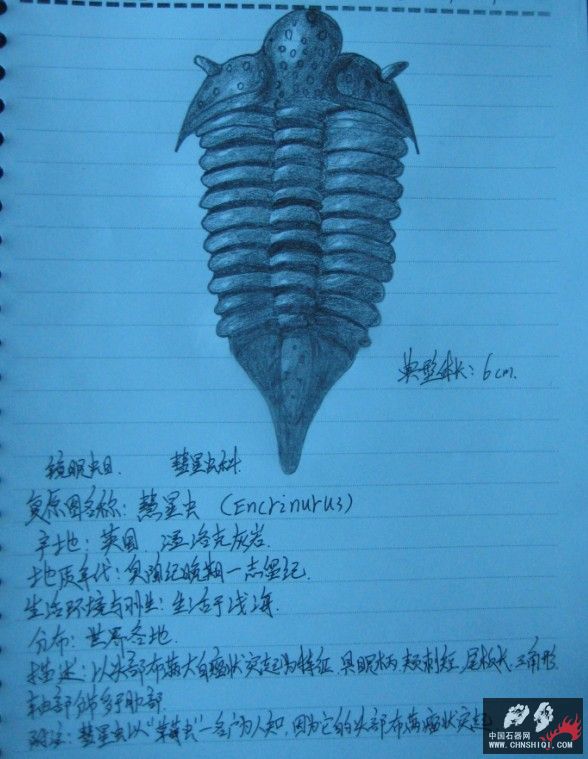 典型体长：6cm.
镜眼虫目.　彗星虫科.
复原图名称：彗星虫（Encrinurus）
产地：英国.温洛克灰岩.
地质年代：奥陶纪晚期—志留纪.
生活环境与习性：生活于浅海.
分布：世界各地.
描述：以头部布满大自瘤状突起为特征.具眼柄.颊刺短.尾板长.三角形
轴部节多于肋部.
附注：彗星虫以“草莓虫”一名广为人知,因为它的头部布满瘤状突起
中国石器网
WWW.CHNSHIQI.COM